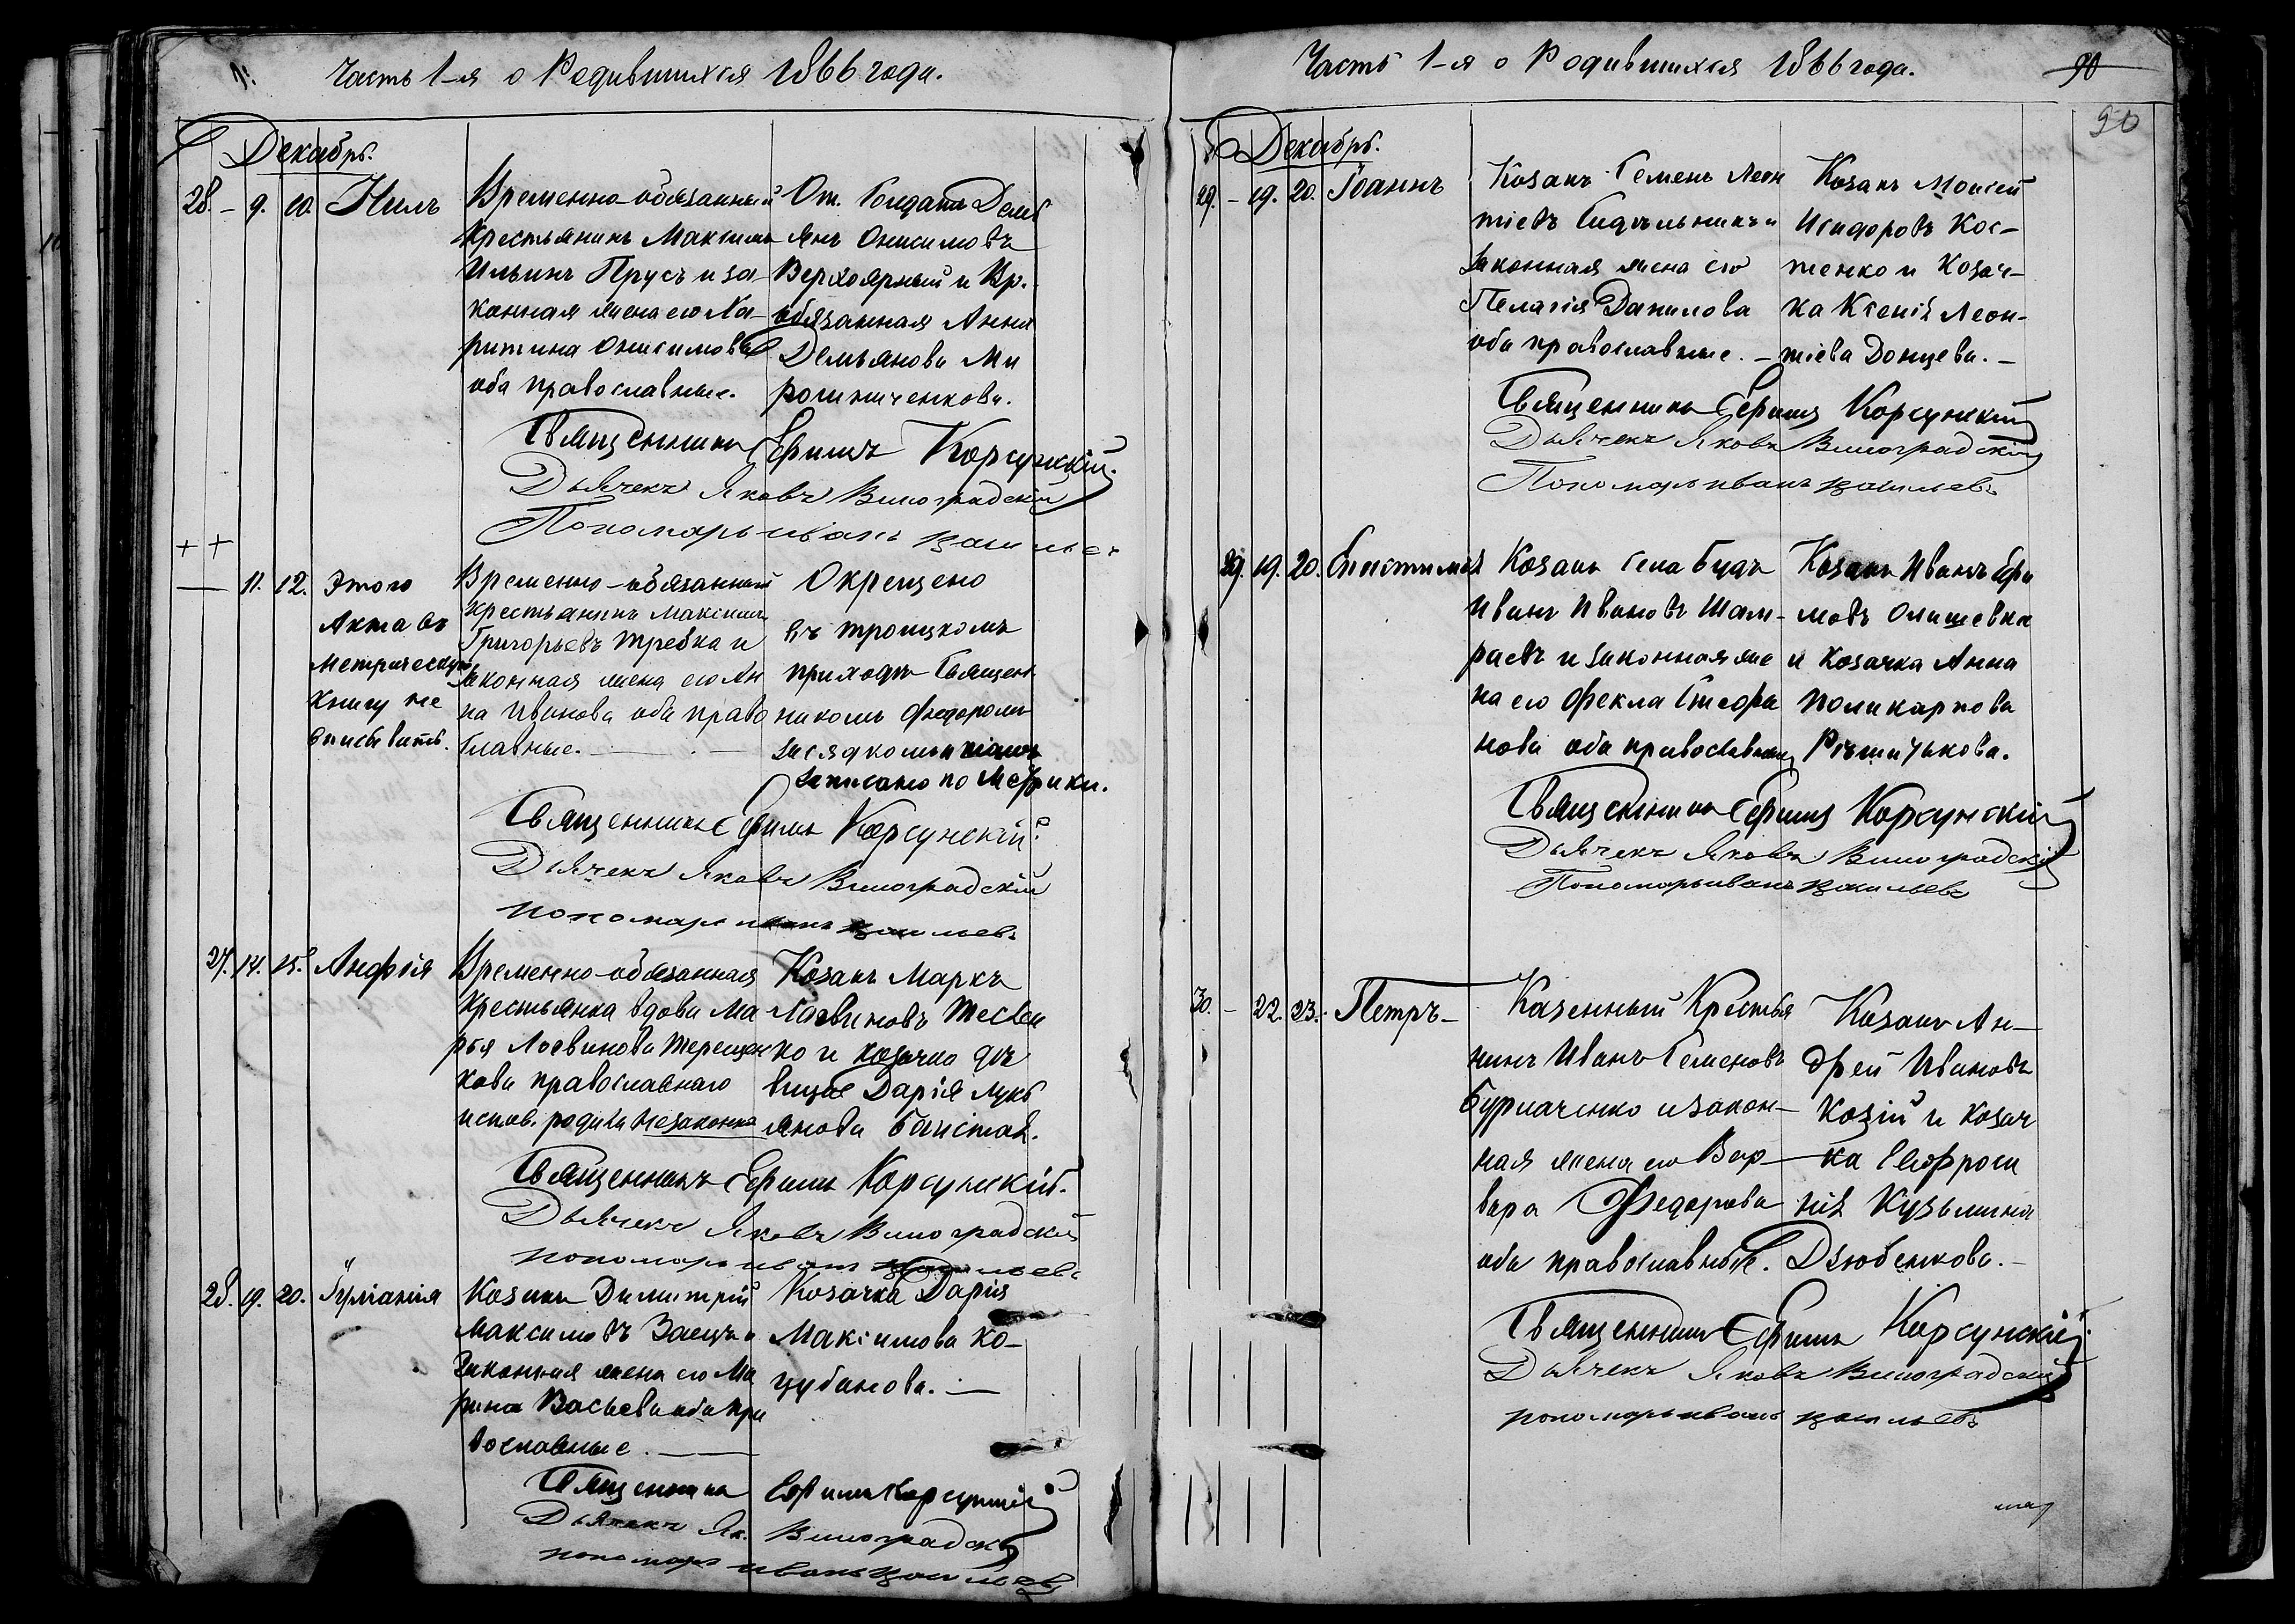 Часть 1-я о Родившихся 1866 года.
Декабрь.
28. – 9. 10. Нилъ
Временно-обязанный
Крестьянинъ Максимъ
Ильинъ Прусъ и за-
конная жена его Ха-
ритина Онисимова
оба православные.
От. Солдатъ Демь
янъ Онисимовъ
Верхоярный и Вр.
обязанная Анна
Демьянова Ми
рошниченкова.
Священникъ Ефимъ Корсунскій.
Дьячекъ Яковъ Виноградскій
Пономарь иванъ
+ +
— 11. 12. Этого
Акта въ
Метрическую
Книгу не
вписывать.
Временно-обязанный
крестьянинъ Максимъ
Григорьевъ Требка и
законная жена его Ан
на Иванова оба право
славные.
Окрещено
въ троицкомъ
приходѣ Священ
никомъ Федоромъ
записано по Метрики.
Священникъ Ефимъ Корсунскій
Дьячекъ Яковъ Виноградскій
пономарь иванъ
27. 14. 15. Анфія
Временно-обязанная
Крестьянка вдова Ма
рья Логвинова Терещен
кова православнаго
испов. родила незаконно
Козакъ Маркъ
Логвиновъ Тесен
ко и козачка дѣ
вица Дарія Лукь
янова
Священникъ Ефимъ Корсунскій.
Дьячекъ Яковъ Виноградскій
пономарь иванъ
28. 19. 20. Іуліанія
Козакъ Димитрій
Максимовъ Заецъ и
Законная жена его Ма
рина Васьева оба пра
вославные.
Козачка Дарія
Максимова Ко-
цубанова.
Священникъ Ефимъ Корсунскій
Дьячекъ Як. Виноградскій
пономарь иванъ
Часть 1-я о Родившихся 1866 года.
90
90
Декабрь.
29. – 19. 20. Іоаннъ
Козакъ Семенъ Леон
тіевъ Сидѣльникъ и
Законная жена его
Пелагія Данилова
оба православные. –
Козакъ Моисей
Исидоровъ Кос-
тенко и Козач-
ка Ксенія Леон-
тіева Донцева. –
Священникъ Ефимъ Корсунскій
Дьячекъ Яковъ Виноградскій
Пономарь иванъ
29. 19. 20. Епистимія
Козакъ села Будъ
Иванъ Ивановъ Шам-
раевъ и законная же
на его Фекла Стефа
нова оба православны
Козакъ Иванъ Ефи
мовъ Олишевка
и Козачка Анна
Поликарпова
Священникъ Ефимъ Корсунскій
Дьячекъ Яковъ Виноградскій
Пономарь иванъ
30. – 22. 23. Петръ –
Казенный Крестья
нинъ Иванъ Семеновъ
Бурмаченко и закон-
ная жена его Вар-
вара Федорова
оба православные.
Козакъ Ан-
дрей Ивановъ
Козій и Козач
ка Евфроси
нія Кузьмина
Дзюбенкова. –
Священникъ Ефимъ Корсунскій.
Дьячекъ Яковъ Виноградскій
пономарь иванъ